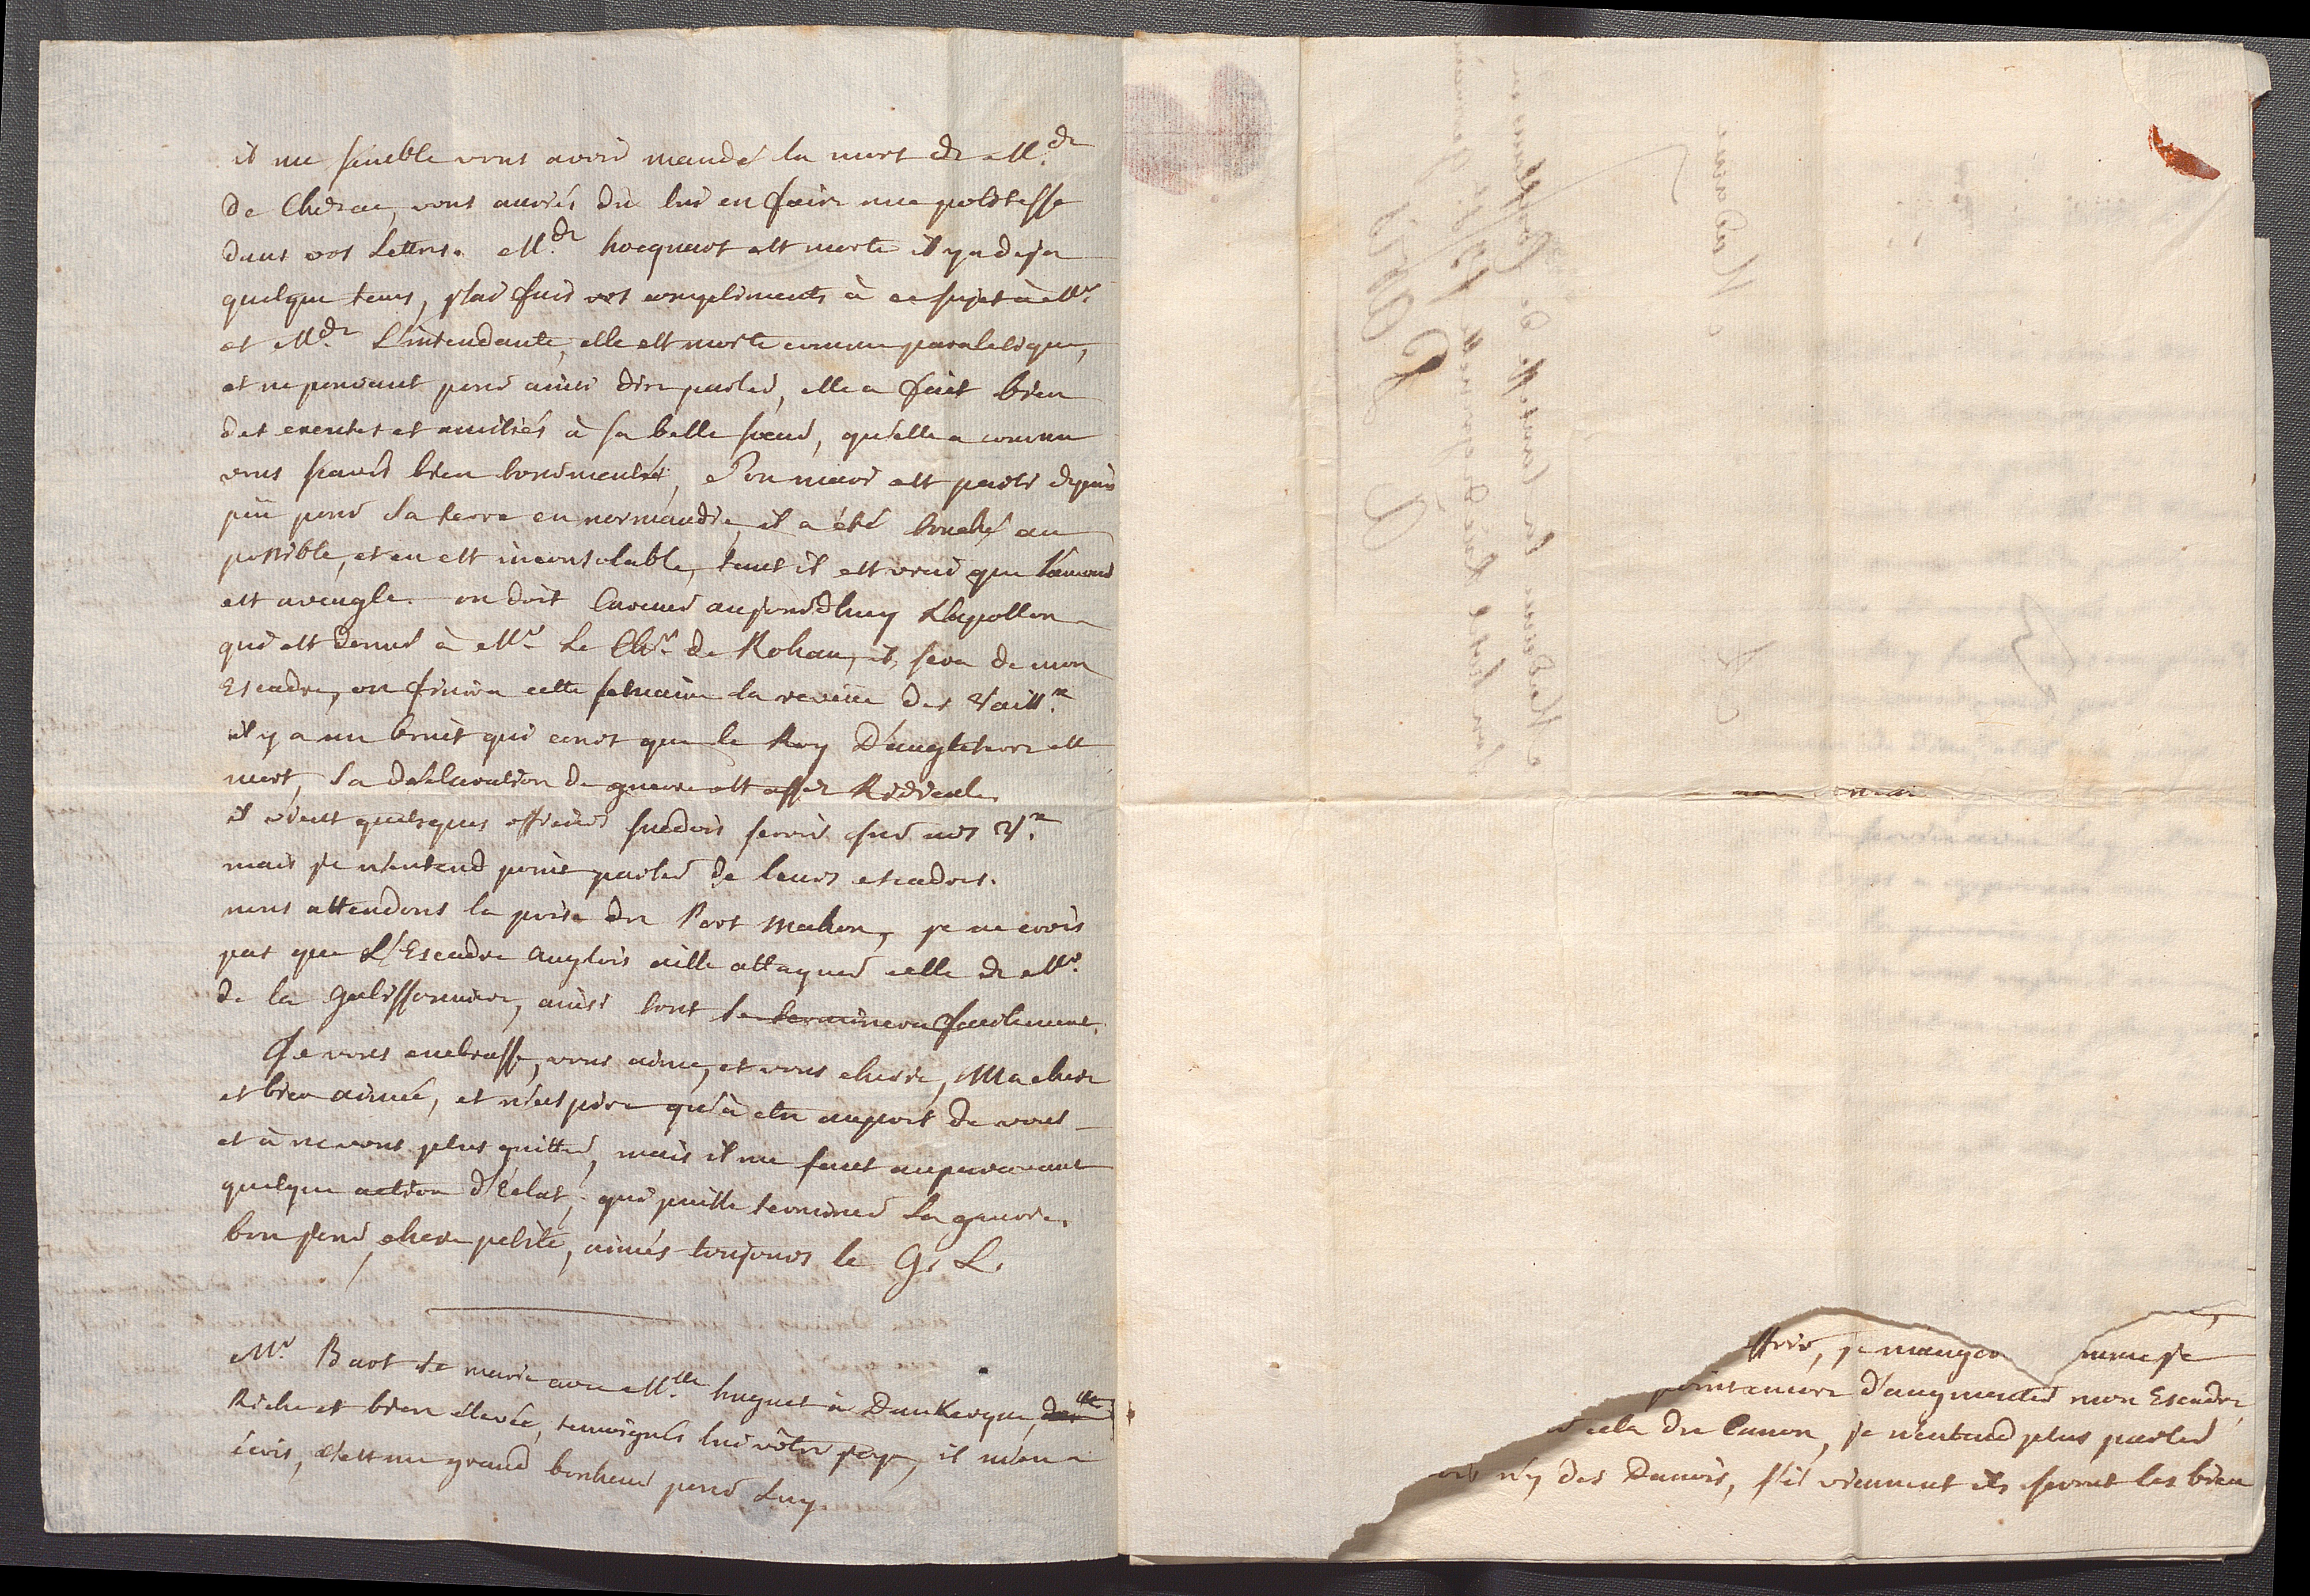 il me semble vous avoir mandé la mort de M.de
de Cherac, vous auriés du lui en faire une politesse
dans vos Lettres. M.de hocquart est morte il y a deja
quelque tems, j'lai fait vos compliments à ce sujet à Mr.
et M.de L'intendante, elle est morte comme paralitique,
et ne pouvant pour ainsi dire parler, elle a fait bien
des excuses et amitiés à sa belle soeur, qu'elle a comme
vous savés bien tourmentée, Son mari est parti depuis
peu pour sa terre en normandie, il a été touché au
possible, et en est inconsolable, tant il est vrai que l'amour
est aveugle. on doit Carener aujourd'huy L'apollon
qui est donné à Mr. Le Chr. de Rohan, il sera de mon
Escadre, on finira cette semaine la reveüe des Vaiss.x
il y a un bruit qui court que le Roy D'angleterre est
mort, sa declaration de guerre est assez Ridicule.
il vient quelques officiers suedois servir sur nos V.x
mais je n'entend point parler de leurs escadres.
nous attendons la prise du Port Mahon, je ne crois
pas que L'Escadre Angloise aille attaquer celle de Mr.
de la Galissonniere, ainsi tout se terminera facilement.
Je vous embrasse, vous aime, et vous cheris, Ma chere
et bien aimée, et n'aspire qu'à etre auprès de vous
et à ne vous plus quitter, mais il me faut auparavant
quelque action d'Eclat, qui puisse terminer La guerre.
bon jour, chere petite, aimés toujours le G. L.
Mr. Bart se marie avec M.lle huguet à Dunkerque, d.lle
Riche et bien élevée, temoignés lui vôtre joye, il m'en a
écrit, C'est un grand bonheur pour Luy.
je mange
point encore d'augmenter mon Escadre,
cela du Canon, je n'entend plus parler
n'y des Danois, s'ils viennent ils seront les bien